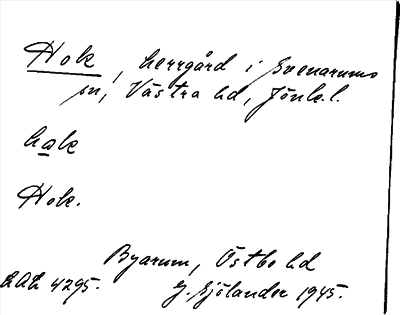 Hok, herrgård i Svenarums
sn, Västra hd, Jönk. l.
hak
Hok.
Byarum, Östbo hd
ULL 4295. G. Sjölander 1945.